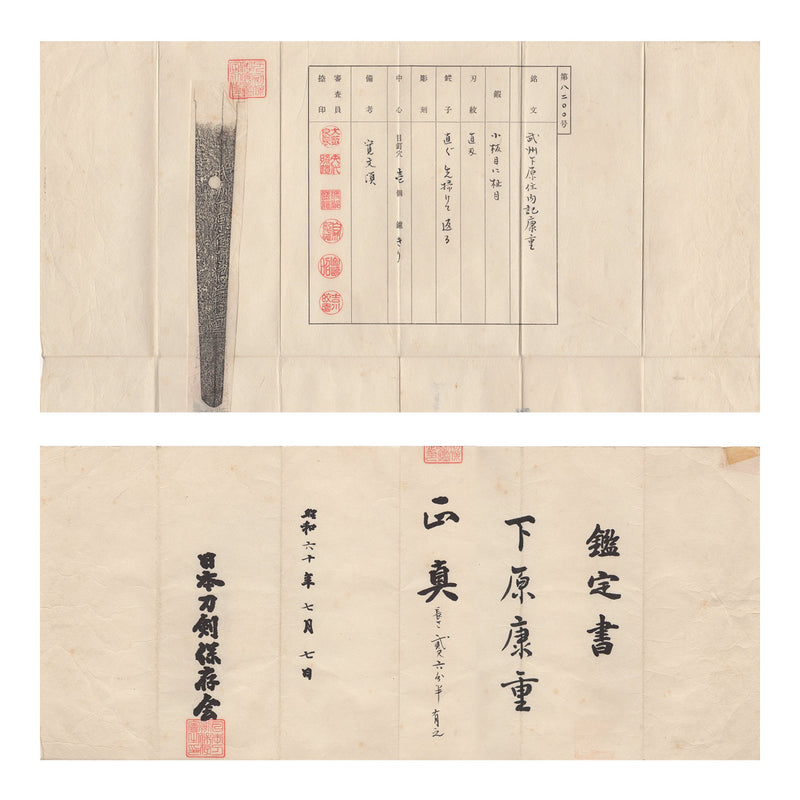 第八二〇〇号
銘文 武州下原住内記康重
鍛 小板目に柾目
刃紋 直刃
鋩子 直ぐ先掃けて返る
彫刻
中心 目釘穴 壱個 鑢 きり
備考 寛文頃
審査員控印
鑑定書
下原康重
正真
長さ 貳尺六分半有之
昭和六十年七月七日
日本刀剣保存会